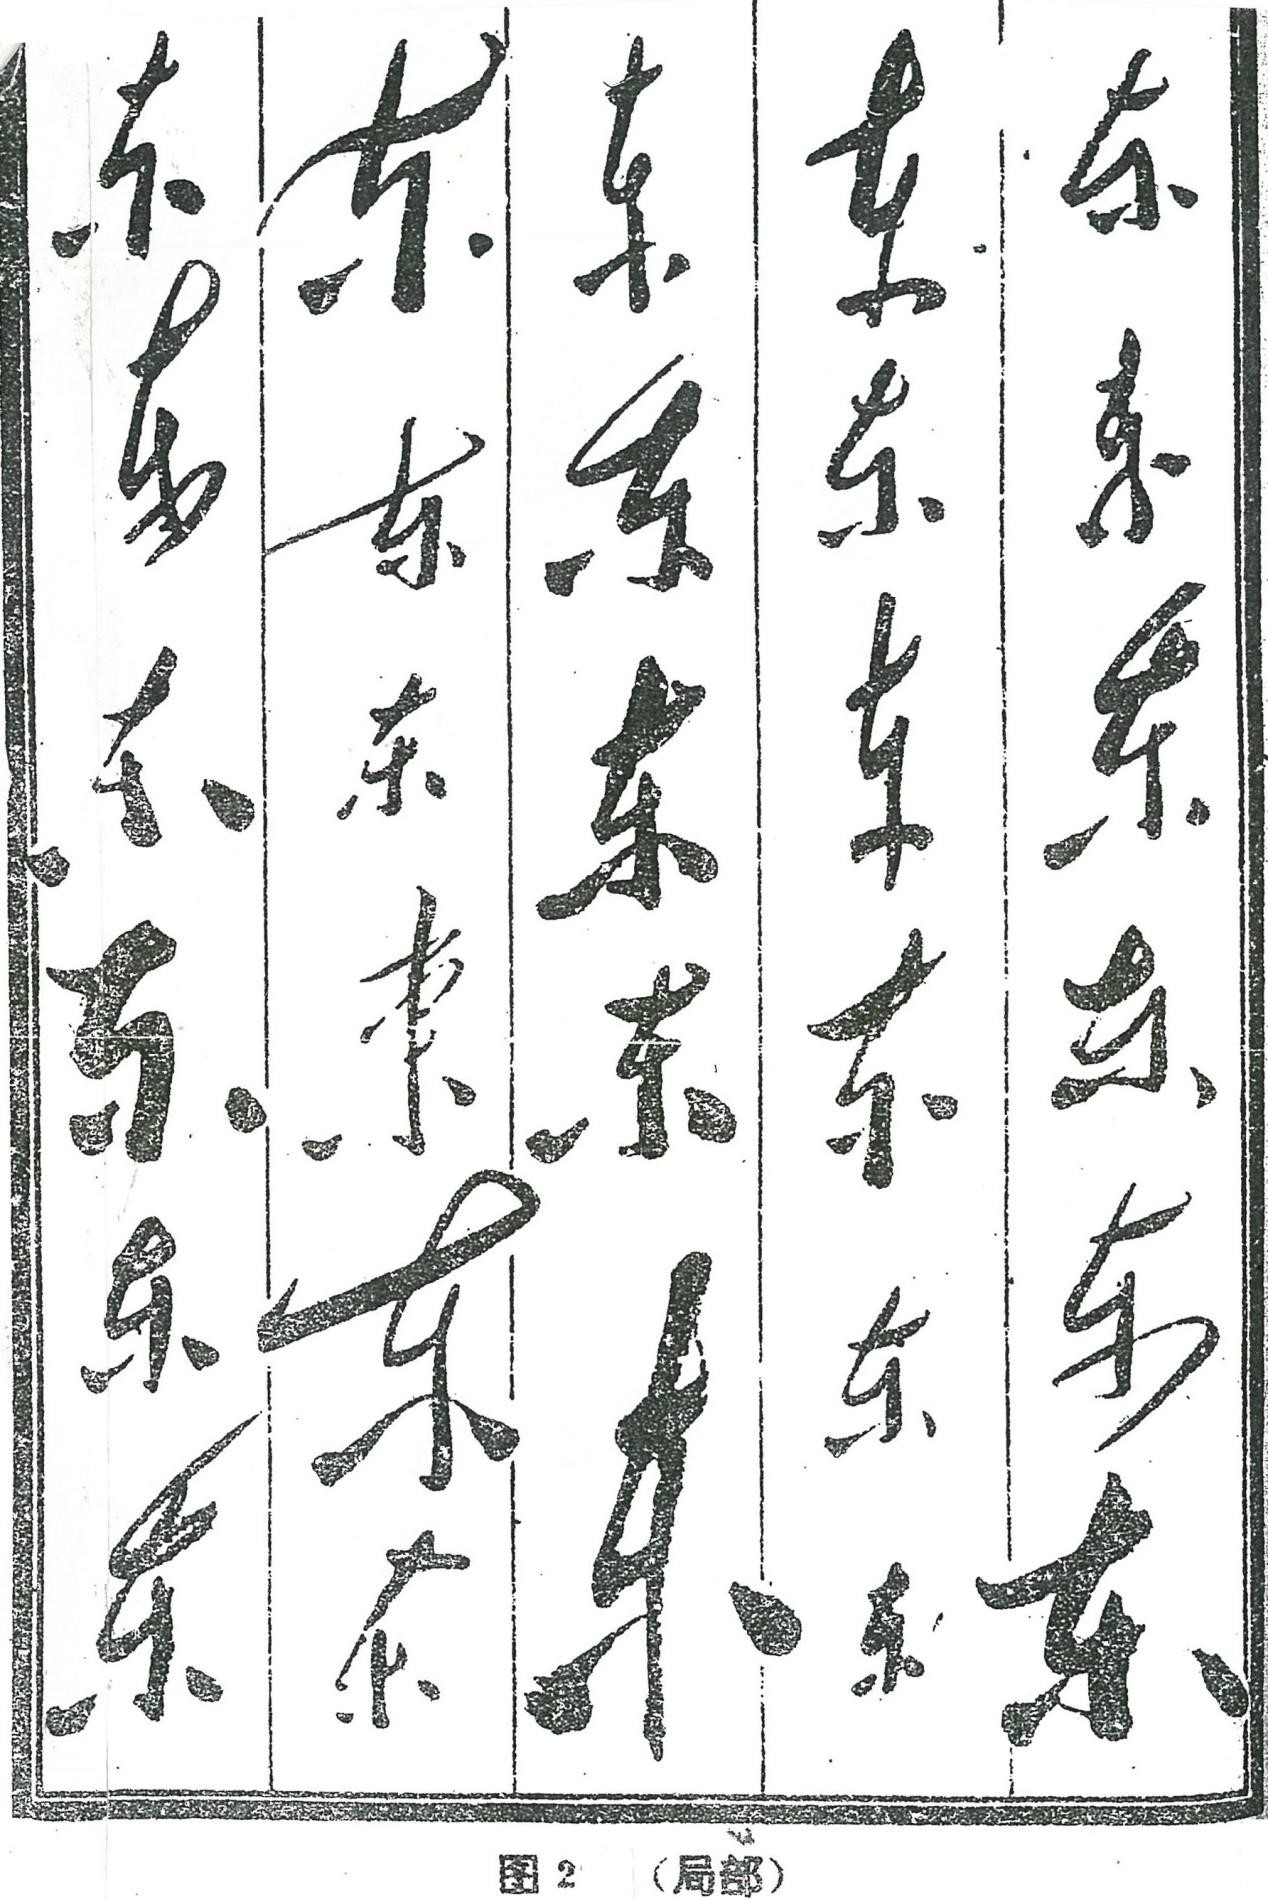 东东东东东东
东东东东东东
东东东东东
东东东东东东
东东东东东东
图2 （局部）